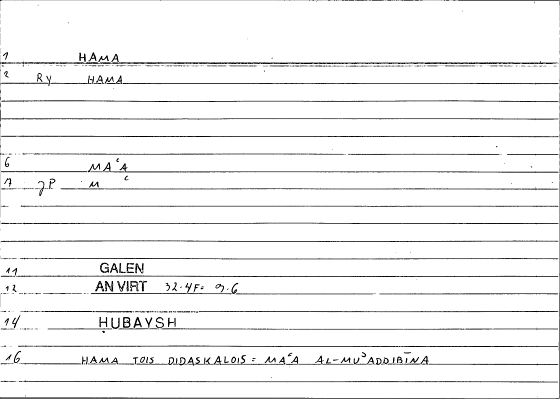 1 HAMA
2 Ry HAMA
6 MAʿA
7 JP M ʿ
11 GALEN
12 AN VIRT 32.4F= 9.6
14 ḤUBAYSH
16 HAMA TOIS DIDASKALOIS = MAʿA AL-MUʾADDIBĪNA